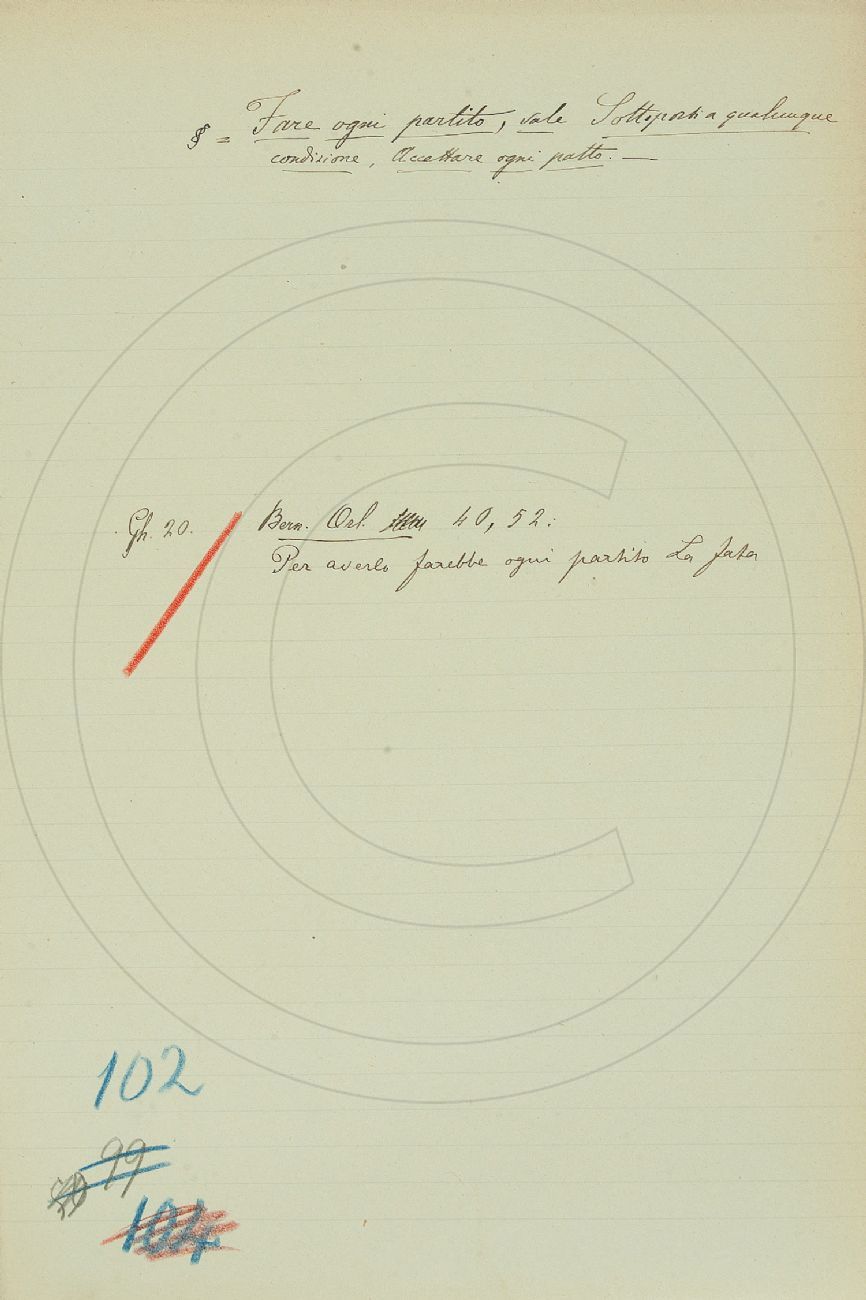 § = Fare ogni partito, vale Sottoporsi a qualunque
condizione, Accettare ogni patto. —
Gh. 20. Bern. Orl. 40, 52:
Per averlo farebbe ogni partito La fata
102
99
104